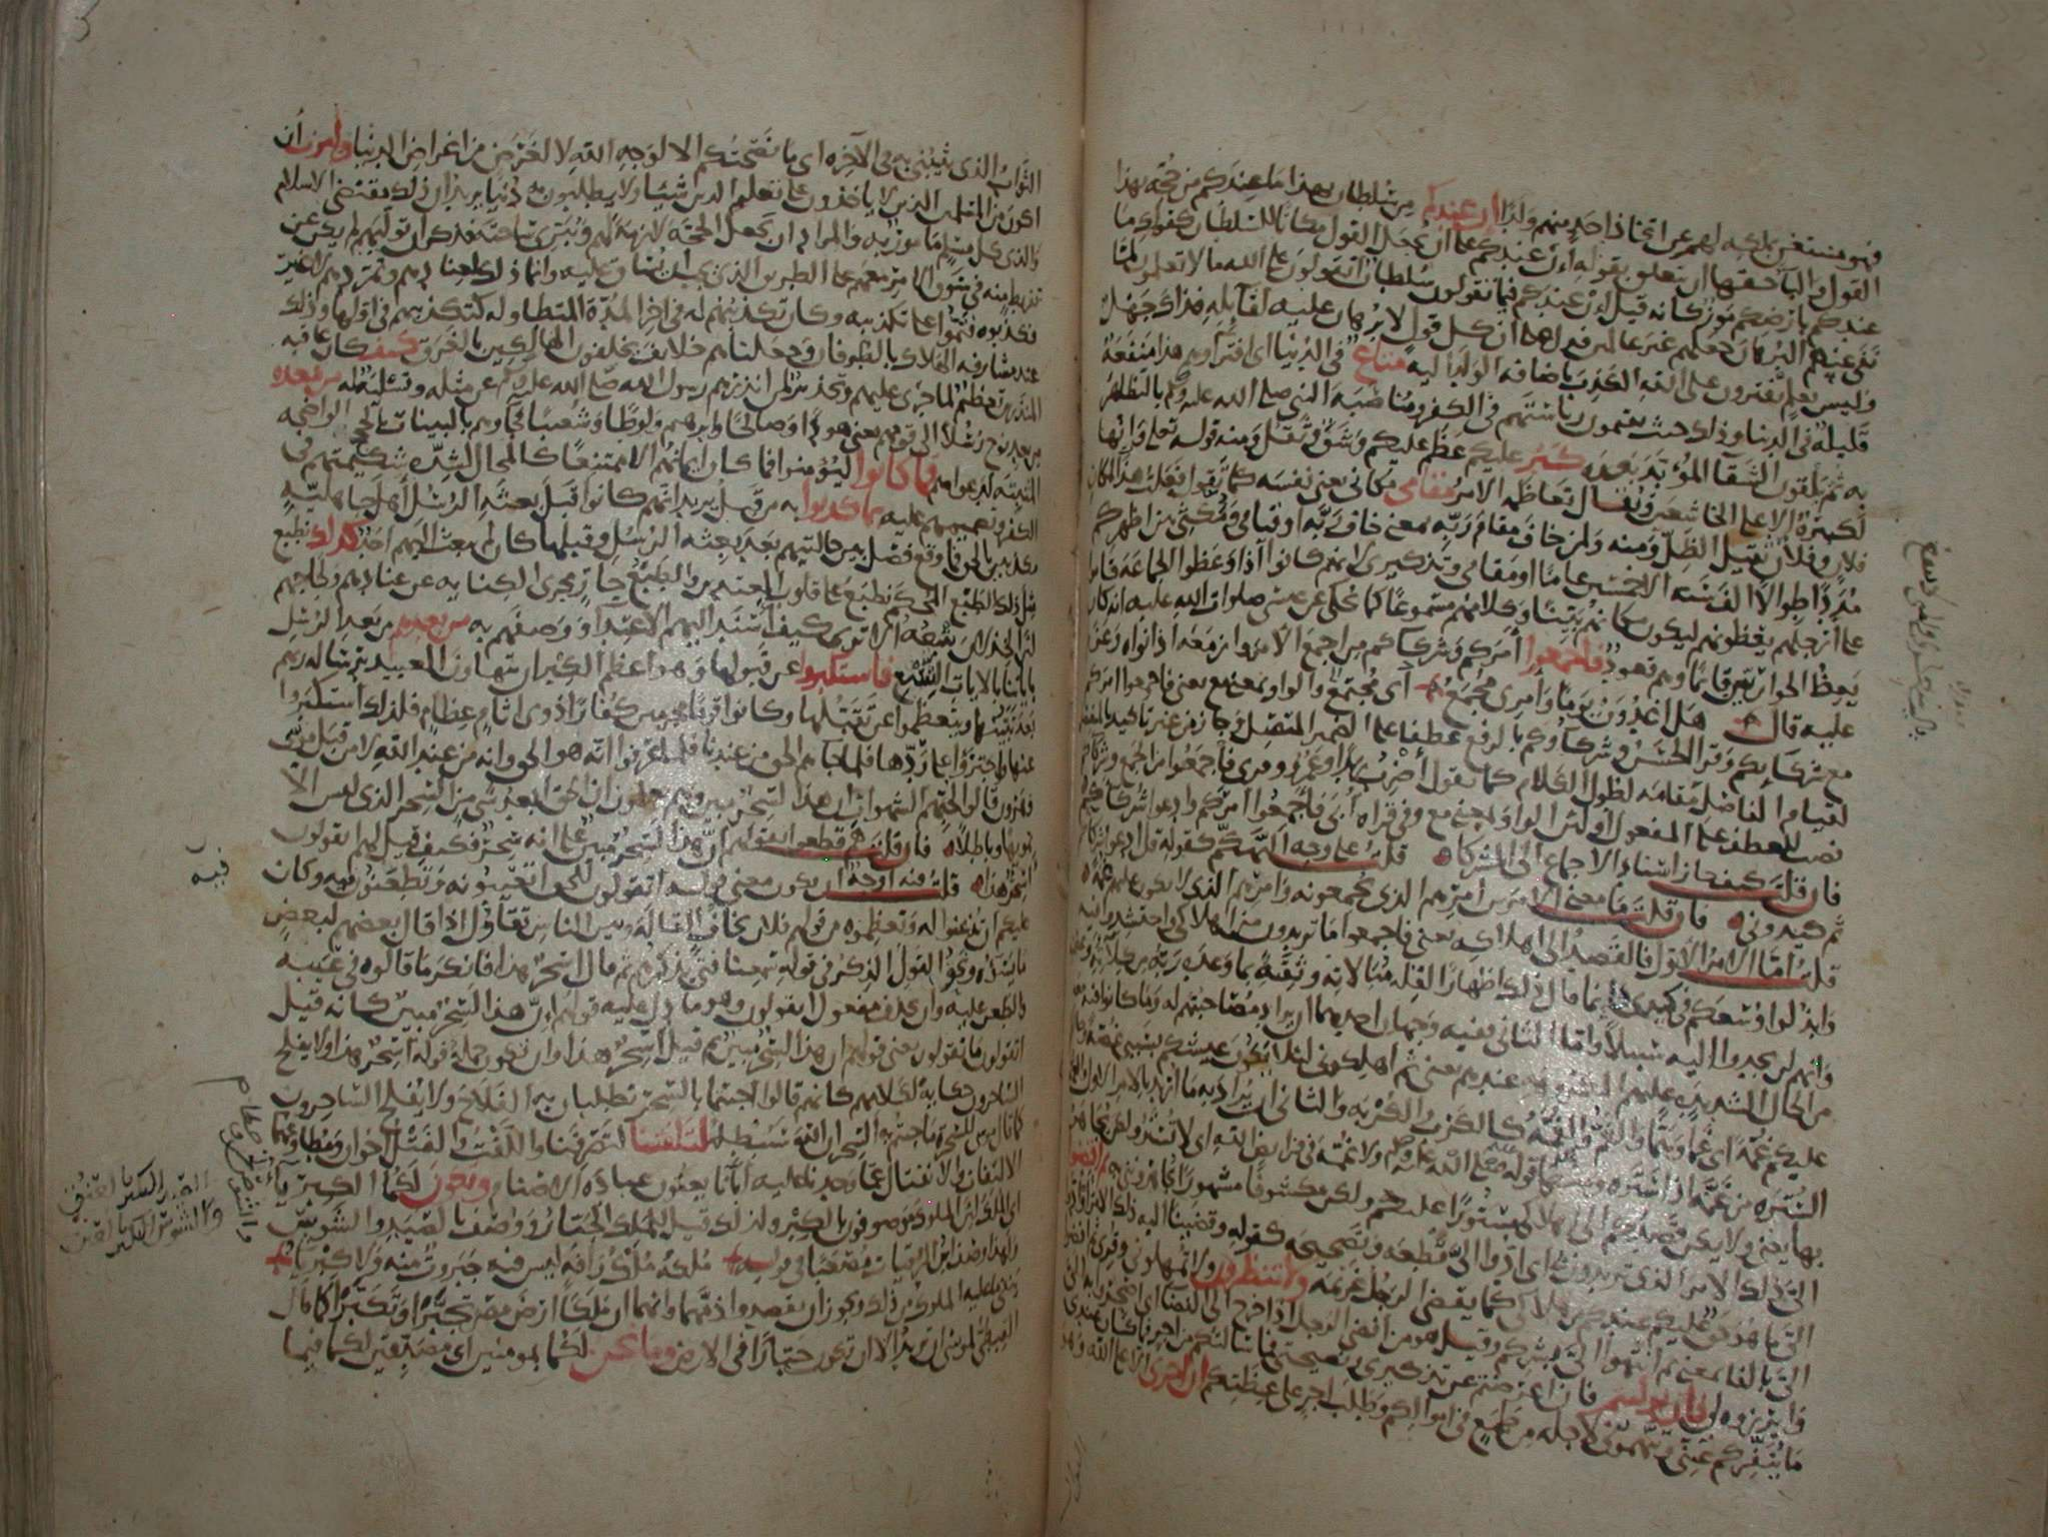 فهو مستغن بملكه لهم عن اتخاذ احد منهم ولدا ان عندكم من سلطان بهذا ما عندكم من حجة بهذا
القول والباحقها ان تعلق بقوله ان عندكم على ان يجعل القول مكانا للسلطان كقولك ما
عندكم بارضكم موز كانه قيل ان عندكم فيما تقولون سلطان اتقولون على الله ما لا تعلمون لما
نفى عنهم البرهان جعلهم غير عالمين فدل على ان كل قول لا برهان عليه لقايله فذاك جهل
وليس بعلم يفترون على الله الكذب باضافة الولد اليه متاع في الدنيا اي افتراوهم هذا منفعة
قليلة في الدنيا وذلك حيث يقيمون رياستهم في الكفر ومناصبة النبي صلى الله عليه وسلم بالتظاهر
به ثم يلقون الشقا المؤبد بعده كبر عليكم عظم عليكم وشق وثقل ومنه قوله تعلى وانها
لكبيرة الا على الخاشعين ويقال تعاظمه الامر مقامي مكاني يعني نفسه كما تقول فعلت هذا لمكان
فلان وفلان ثقيل الظل ومنه ولمن خاف مقام ربه بمعنى خاف ربه او قيامي ومكثي بين اظهركم
مددا طوالا الف سنه الا خمسين عاما او مقامي وتذكيري لانهم كانوا اذا وعظوا الجماعة قاموا
على ارجلهم يعظونهم ليكون مكانهم بينا وكلامهم مسموعا كما يحكى عن عيسى صلوات الله عليه انه كان
يعظ الحواريين قايما وهم قعود فاجمعوا امركم وشركاكم من اجمع الامر وازمعه اذا نواه وعزم
عليه قال هل اغدون يوما وامري مجمع اي مجتمع والواو بمعنى مع يعني فاجمعوا امركم
مع شركايكم وقرا الحسن وشركاؤكم بالرفع عطفا على الضمير المتصل وجاز من غير تاكيد بالمنفصل
لقيام الفاصل مقامه لطول الكلام كما تقول اضرب زيدا وعمرو وقرى فاجمعوا من الجمع وشركاكم
نصب للعطف على المفعول او لان الواو بمعنى مع وفي قراه ابي فاجمعوا امركم وادعوا شركاكم
فان قلت كيف جاز اسناد الاجماع الى الشركا قلت على وجه التهكم كقوله قل ادعوا شركاكم
ثم كيدون فان قلت ما معنى الامرين امرهم الذي يجمعونه وامرهم الذي لا يكون عليهم غمة
قلت اما الامر الاول فالقصد الى اهلاكه يعني فاجمعوا ما تريدون من اهلاكي واحتشدوا فيه
وابذلوا وسعكم في كيدي وانما قال ذلك اظهارا لقلة مبالاته وثقته بما وعده ربه من كلاته
وانهم لن يجدوا اليه سبيلا واما الثاني ففيه وجهان احدهما ان يراد مصاحبتهم له وما كانوا فيه
من الحال الشديده عليهم المكروهه عندهم يعني ثم اهلكوني لئلا يكون عيشكم بسببي غصة
عليكم غمة اي غما وهما والغم والغمة كالكرب والكربه والثاني ان يراد به ما اريد بالامر الاول
السترة من غمه اذا ستره ومنها قوله صلى الله عليه وسلم ولا غمة في فرايض الله اي لا تستر ولكن يجاهر
بها يعني ولا يكن قصدكم الى اهلاكي مستورا عليكم ولكن مكشوفا مشهورا تجاهرونني به ثم اقضوا
الي ذلك الامر الذي تريدون بي اي ادوا الي قطعه وتصحيحه كقوله وقضينا اليه ذلك الامر
الي ما هو حق عليكم عندكم من هلاكي كما يقضي الرجل غريمه ولا تنظرون ولا تمهلوني وقرى ثم افضوا
الي بالفا بمعنى ثم انتهوا الي بشركم وقيل هو من افضى الرجل اذا خرج الى الفضا اي اصحروا به الي
وابرزوه لي فان توليتم فان اعرضتم عن تذكيري ونصيحتي فما سالتكم من اجر فما كان عندي
ما ينفركم عني وتتهموني لاجله من طمع في اموالكم وطلب اجر على عظتكم ان اجري الا على الله وهو
الثواب الذي يثيبني به في الاخره اي ما نصحتكم الا لوجه الله لا لغرض من اغراض الدنيا وامرت ان
اكون من المسلمين الذين لا ياخذون على تعليم الدين شيا ولا يطلبون به دنيا يريد ان ذلك مقتضى الاسلام
والذي كل مسلم مامور به والمراد ان يجعل الحجة لازمة لهم ويبرئ ساحته فذكر ان توليهم لم يكن عن
تفريط منه في سوق الامر معهم على الطريق الذي يجب ان يساق عليه وانما ذلك لعنادهم وتمردهم لا غير
فكذبوه فتموا على تكذيبه وكان تكذيبهم له في اخر المدة المتطاوله كتكذيبهم في اولها وذلك
عند مشارفة الهلاك بالطوفان وجعلناهم خلايف يخلفون الهالكين بالغرق كيف كان عاقبه
المنذرين تعظيم لما جرى عليهم وتحذير لمن انذرهم رسول الله صلى الله عليه وسلم عن مثله وتسليه له من بعده
من بعد نوح رسلا الى قومهم يعني هودا وصالحا وابرهيم ولوطا وشعيبا فجاوهم بالبينات بالحجج الواضحه
المثبته لدعواهم فما كانوا ليؤمنوا فما كان ايمانهم الا ممتنعا كالمحال لشده شكيمتهم في
الكفر وتصميمهم عليه بما كذبوا به من قبل يريد انهم كانوا قبل بعثه الرسل اهل جاهليه
مكذبين بالحق فما وقع فصل بين حالتيهم بعد بعثه الرسل وقبلها كان لم يبعث اليهم احد كذلك نطبع
مثل ذلك الطبع المحكم نطبع على قلوب المعتدين والطبع جار مجرى الكنايه عن عنادهم ولجاجهم
لان الخذلان يتبعه الا ترى كيف اسند اليهم الاعتدا ووصفهم به من بعدهم من بعد الرسل
باياتنا بالايات التسع فاستكبروا عن قبولها وهو اعظم الكبر ان يتهاون العبيد برسالة ربهم
بعد تبينها ويتعظموا عن تقبلها وكانوا قوما مجرمين كفارا ذوي اثام عظام فلذلك استكبروا
عنها واجتروا على ردها فلما جاهم الحق من عندنا فلما عرفوا انه هو الحق وانه من عند الله لا من قبل موسى
وهرون قالوا لحبهم الشهوات ان هذا لسحر مبين وهم يعلمون ان الحق ابعد شي من السحر الذي ليس الا
تمويها وباطلا فان قلت هم قطعوا بقولهم ان هذا لسحر مبين على انه سحر فكيف قيل لهم اتقولون
اسحر هذا قلت فيه اوجه ان يكون معنى قوله اتقولون للحق اتعيبونه وتطعنون فيه وكان
عليكم ان تذعنوا له وتعظموه من قولهم فلان يخاف القالة وبين الناس تقاول اذا قال بعضهم لبعض
ما يسؤه ونحو القول الذكر في قوله سمعنا فتى يذكرهم ثم قال اسحر هذا فانكر ما قالوه في عيبه
والطعن عليه وان يحذف مفعول اتقولون وهو ما دل عليه قولهم ان هذا لسحر مبين كانه قيل
اتقولون ما تقولون يعني قولهم ان هذا لسحر مبين ثم قيل اسحر هذا وان تكون جملة قوله اسحر هذا ولا يفلح
الساحرون حكاية لكلامهم كانهم قالوا اجئتما بالسحر تطلبان به الفلاح ولا يفلح الساحرون
كما قال موسى للسحرة ما جئتم به السحر ان الله سيبطله لتلفتنا لتصرفنا واللفت والفتل اخوان ومطاوعهما
الالتفات والانفتال عما وجدنا عليه ابانا يعنون عبادة الاصنام وتكون لكما الكبريا
اي الملك لان الملوك موصوفون بالكبر ولذلك قيل للملك الجبار ووصف بالصيد والشوس
ولهذا وصف ابن الرقيات مصعبا في قوله ملكه ملك رافة ليس فيه جبروت منه ولا كبريا
ينفي ما عليه الملوك من ذلك ويجوز ان يقصدوا ذمهما وانهما ان ملكا ارض مصر تجبرا وتكبرا كما قال
القبطي لموسى ان تريد الا ان تكون جبارا في الارض وما نحن لكما بمومنين اي مصدقين لكما فيما
فيه